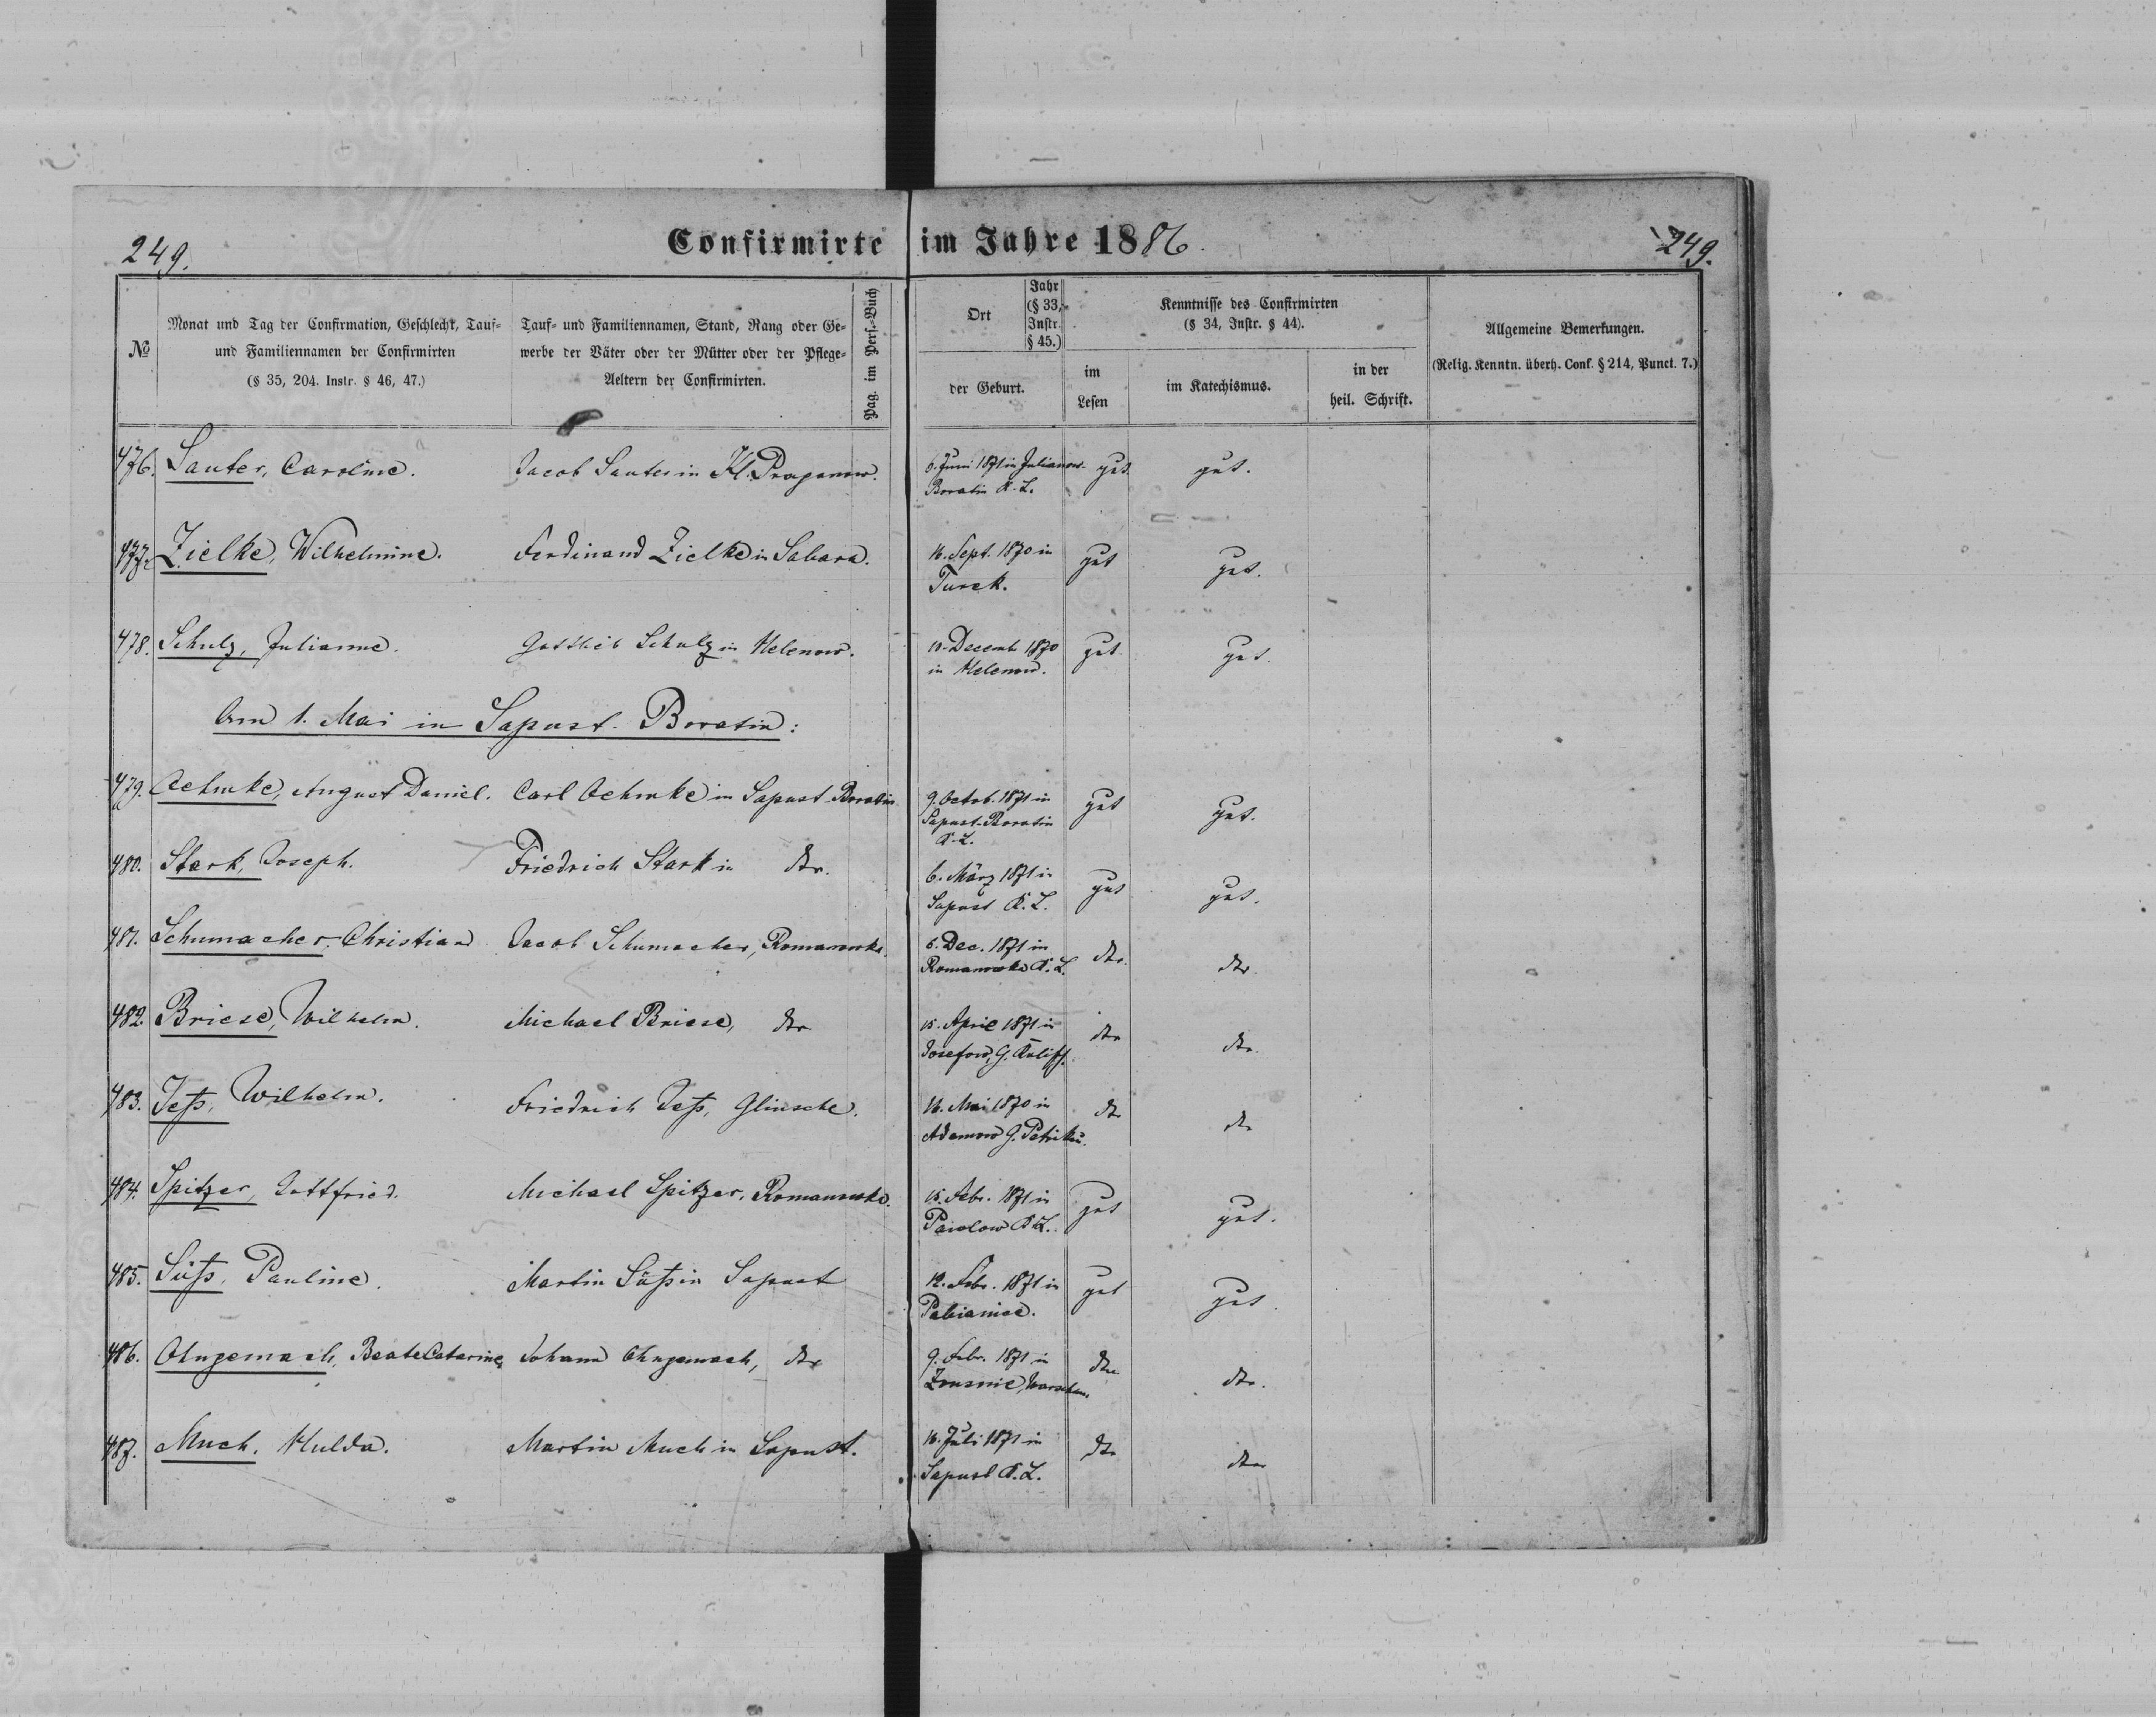 249.
Confirmirte im Jahre 1886.
249.
№
Monat und Tag der Confirmation, Geschlecht, Tauf-
und Familiennamen der Confirmirten
(§ 35, 204. Instr. § 46, 47.)
Tauf- und Familiennamen, Stand, Rang oder Ge-
werbe der Väter oder der Mütter oder der Pflege-
Aeltern der Confirmirten.
Pag. im Pers.-Buch
Ort
Jahr
(§ 33,
Instr.
§ 45.)
der Geburt.
Kenntnisse des Confirmirten
(§ 34, Instr. § 44).
im
Lesen
im Katechismus.
in der
heil. Schrift.
Allgemeine Bemerkungen.
(Relig. Kenntn. überh. Conf. § 214, Punct. 7.)
476. Sauter, Caroline. Jacob Sauter in Kl. Praganow. 6. Juni 1871 in Julianow- gut. gut.
Boratin K. L.
477. Zielke, Wilhelmine. Ferdinand Zielke in Sabara. 16. Sept. 1870 in gut gut.
Turek.
478. Schulz, Julianne. Gottlieb Schulz in Helenow. 10. Decemb 1870 gut gut.
in Helenow.
Am 1. Mai in Sapust-Boratin:
479. Oehmke, August Daniel. Carl Oehmke in Sapust-Boratin 9. Octob. 1871 in gut gut.
Sapust-Boratin
K. L.
480. Stark, Joseph. Friedrich Stark in dto. 6. März 1871 in gut gut.
Sapust K. L.
481. Schumacher, Christian Jacob Schumacher, Romanowka. 6. Dec. 1871 in dto. dto.
Romanowka K. L.
482. Briese, Wilhelm. Michael Briese, dto 15. April 1871 in dto dto.
Josefow, G. Kalisch.
483. Jeß, Wilhelm. Friedrich Jeß, Glinsche. 16. Mai 1870 in dto dto
Adamow G. Petrikau.
484. Spitzer, Gottfried. Michael Spitzer, Romanowka. 15. Febr. 1871 in gut gut.
K. L.
485. Süß, Pauline. Martin Süß in Sapust 12. Febr. 1871 in gut gut.
Pabianice.
486. Ohngemach, Beate Catarine Johann Ohngemach, dto 9. Febr. 1871 in dto dto.
Warschau
487. Much, Hulda. Martin Much in Sapust. 16. Juli 1871 in dto dto
Sapust K. L.